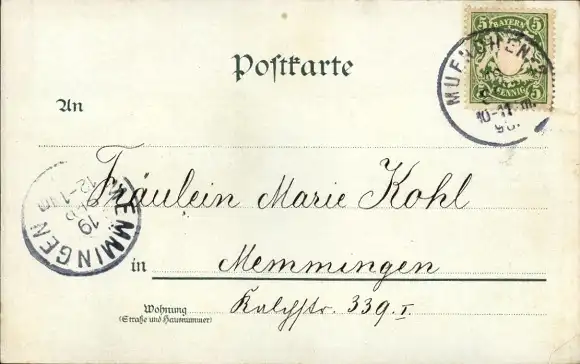 5 BAYERN 5
PFENNIG
MUENCHEN
10-11
Postkarte
An
Fräulein Marie Kohl
MEMMINGEN
19
12-1
in Memmingen
Wohnung
(Straße und Hausnummer)
Kalchstr. 339.I.